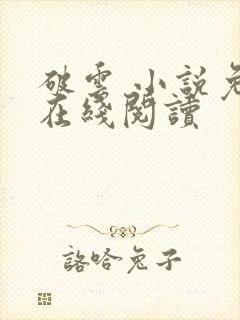 破雲 小說免
在綫閱讀
詻哈兔子